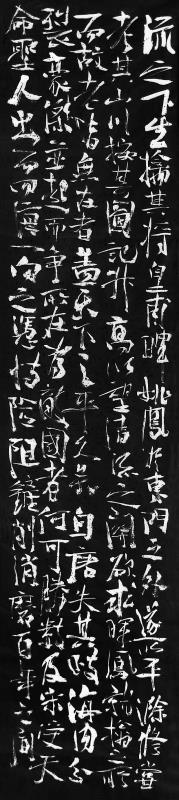 流之下生擒其将皇甫暉姚鳳於東門之外遂以平滁修嘗
考其山川按其圖記升高以望清流之關欲求暉鳳就擒之所
而故老皆無在者蓋天下之平久矣自唐失其政海内分
裂豪傑並起而争所在為敵國者何可勝數及宋受天
命聖人出而四海一向之憑恃險阻剷削消磨百年之間